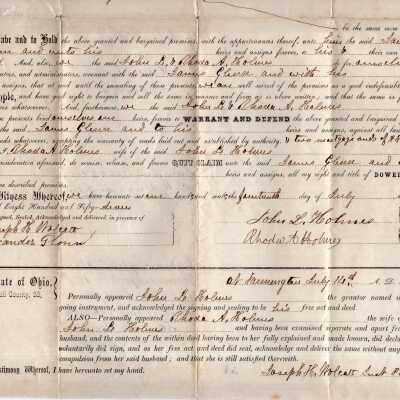 be the same more
abe and to Hold the above granted and bargained premises, with the appurtenances thereof, unto him the said
and unto his heirs and assigns forever, to his & their own
And also, we the said John L & Rhoda A. Holmes for ourselves
tors, and administrators, covenant with the said James Gluer and with his
assigns, that at and until the ensealing of these presents, we are well seized of the premises as a good and indefeasible
imple, and have good right to bargain and sell the same in manner and form as is above written; and that the same is
whatsoever. And furthermore, we the said John L & Rhoda A. Holmes
presents bind ourselves our heirs, forever to WARRANT AND DEFEND the above granted and bargained
the said James Gluer and to his heirs and assigns, against all
whatsoever, excepting the warranty of roads laid out and established by authority, & two mortgages
I Rhoda A Holmes wife of the said John L. Holmes
consideration aforesaid, do remise, release, and forever QUIT CLAIM unto the said James Gluer and
heirs and assigns, all my right and title of DOWER
described premises.
Witness Whereof, we have hereunto set our hands and seals, the fourteenth day of July
Eight Hundred and Fifty-seven
Signed, Sealed, Acknowledged and delivered, in presence of
Joseph H Wolcott
John L. Holmes
Rhoda A Holmes
ate of Ohio,
County, SS,
At Farmington July 14th A. D.
Personally appeared John L Holmes the grantor
going instrument, and acknowledged the signing and sealing to be his free act and deed.
ALSO—Personally appeared Rhoda A, Holmes the wife of
John L Holmes and having been examined separate and apart
husband, and the contents of the within deed having been to her fully explained and made known, did declare
voluntarily did sign, and as her free act and deed seal, acknowledge and deliver the same without
compulsion from her said husband; and that she is still satisfied therewith.
timony Whereof, I have hereunto set my hand.
Joseph H, Wolcott Just